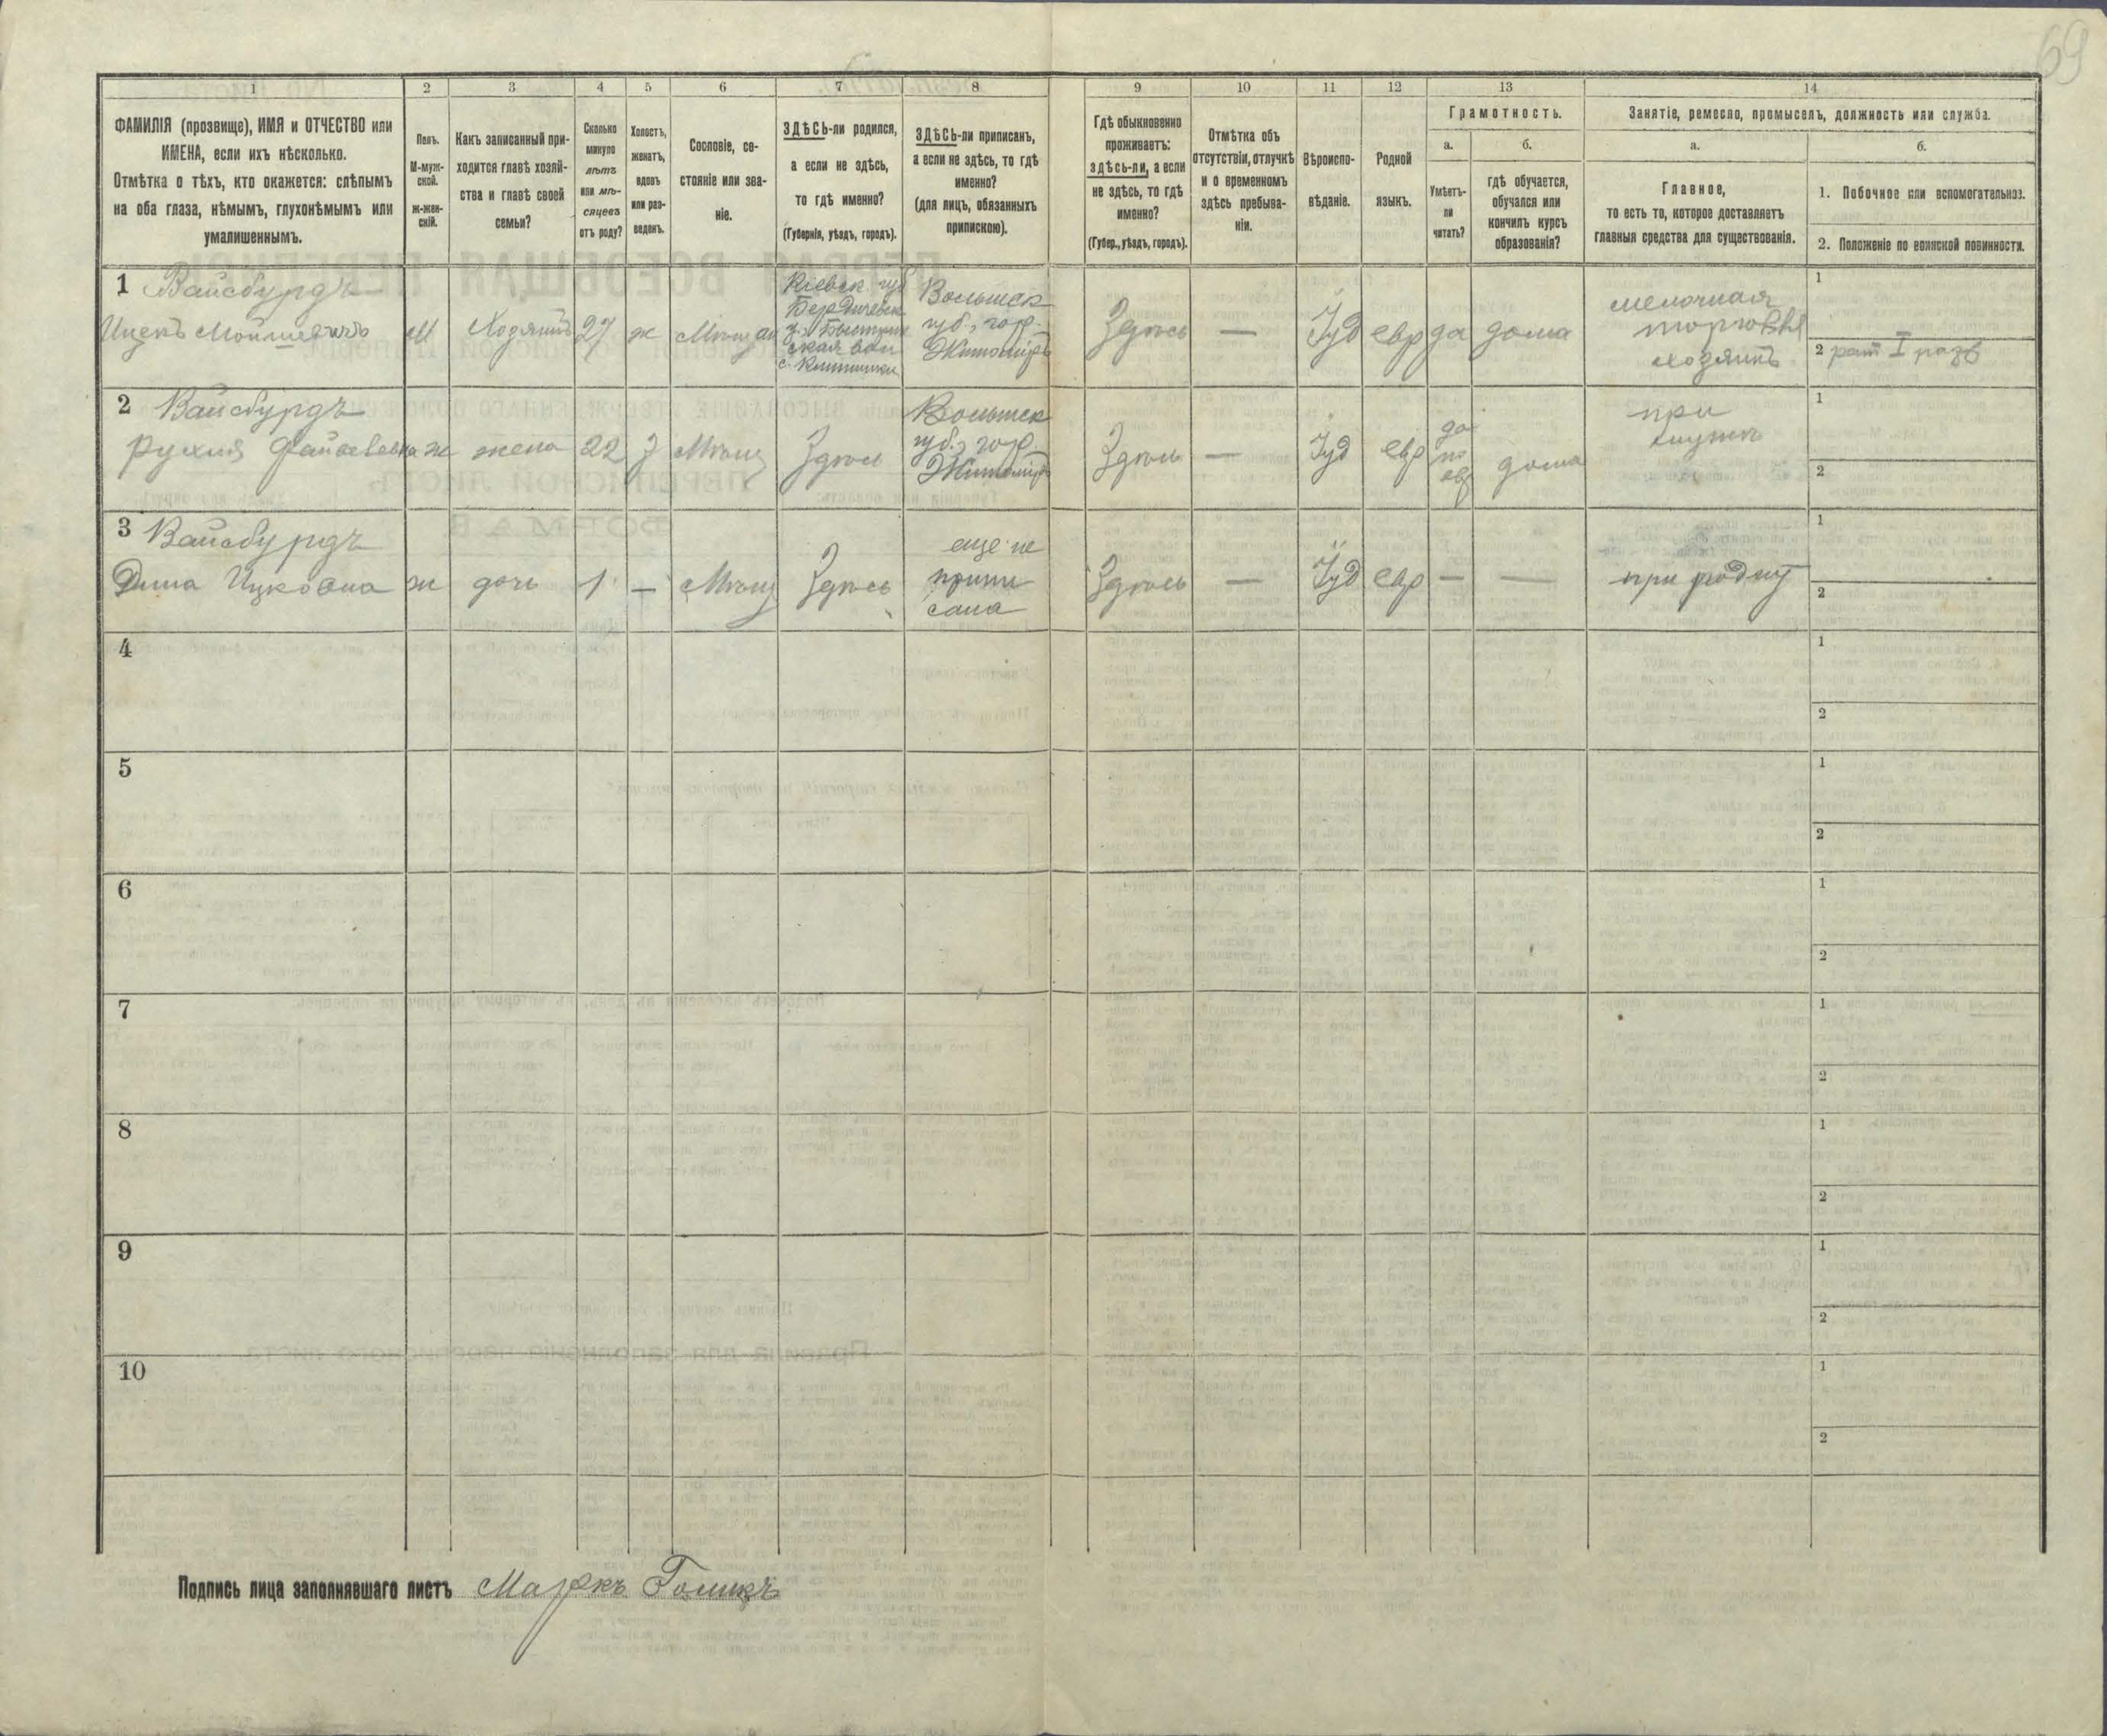 69
1
2
3
4
5
6
7
8
9
10
11
12
13
14
ФАМИЛІЯ (прозвище), ИМЯ и ОТЧЕСТВО или
ИМЕНА, если ихъ нѣсколько.
Отмѣтка о тѣхъ, кто окажется: слѣпымъ
на оба глаза, нѣмымъ, глухонѣмымъ или
умалишеннымъ.
Полъ.
М-муж-
ской.
ж-жен-
скій.
Какъ записанный при-
ходится главѣ хозяй-
ства и главѣ своей
семьи?
Сколько
минуло
лѣтъ
или мѣ-
сяцевъ
отъ роду?
Холостъ,
женатъ,
вдовъ
или раз-
веденъ.
Сословіе, со-
стояніе или зва-
ніе.
ЗДѢСЬ-ли родился,
а если не здѣсь,
то гдѣ именно?
(Губернія, уѣздъ, городъ).
ЗДѢСЬ-ли приписанъ,
а если не здѣсь, то гдѣ
именно?
(для лицъ, обязанныхъ
припискою).
Гдѣ обыкновенно
проживаетъ:
здѣсь-ли, а если
не здѣсь, то гдѣ
именно?
(Губер., уѣздъ, городъ).
Отмѣтка объ
отсутствіи, отлучкѣ
и о временномъ
здѣсь пребыва-
ніи.
Вѣроиспо-
вѣданіе.
Родной
языкъ.
Грамотность.
а.
Умѣетъ-
ли
читать?
б.
гдѣ обучается,
обучался или
кончилъ курсъ
образованія?
Занятіе, ремесло, промыселъ, должность или служба.
а.
Главное,
то есть то, которое доставляетъ
главныя средства для существованія.
б.
1. Побочное или вспомогательное.
2. Положеніе по воинской повинности.
1 Вайсбурдъ
Ицекъ Мойшевичъ
М
Хозяинъ
27
ж
Мѣщан
Кіевск губ
Бердичевск
у.
с.
Волынск
губ., гор.
Житоміръ
Здѣсь
—
Іуд
евр
да
дома
мелочная
торговля
хозяинъ
1
2 рат I разр
2 Вайсбурдъ
Рухля
ж
жена
22
З
Мѣщ
Здѣсь
Волынск
губ., гор.
Житоміръ
Здѣсь
—
Іуд
евр
да
по
евр
дома
при
мужѣ
1
2
3 Вайсбурдъ
Дина Ицковна
ж
дочь
1
—
Мѣщ
Здѣсь
еще не
припи
сана
Здѣсь
—
Іуд
евр
—
—
при родит
1
2
4
1
2
5
1
2
6
1
2
7
1
2
8
1
2
9
1
2
10
1
2
Подпись лица заполнявшаго листъ Маркъ